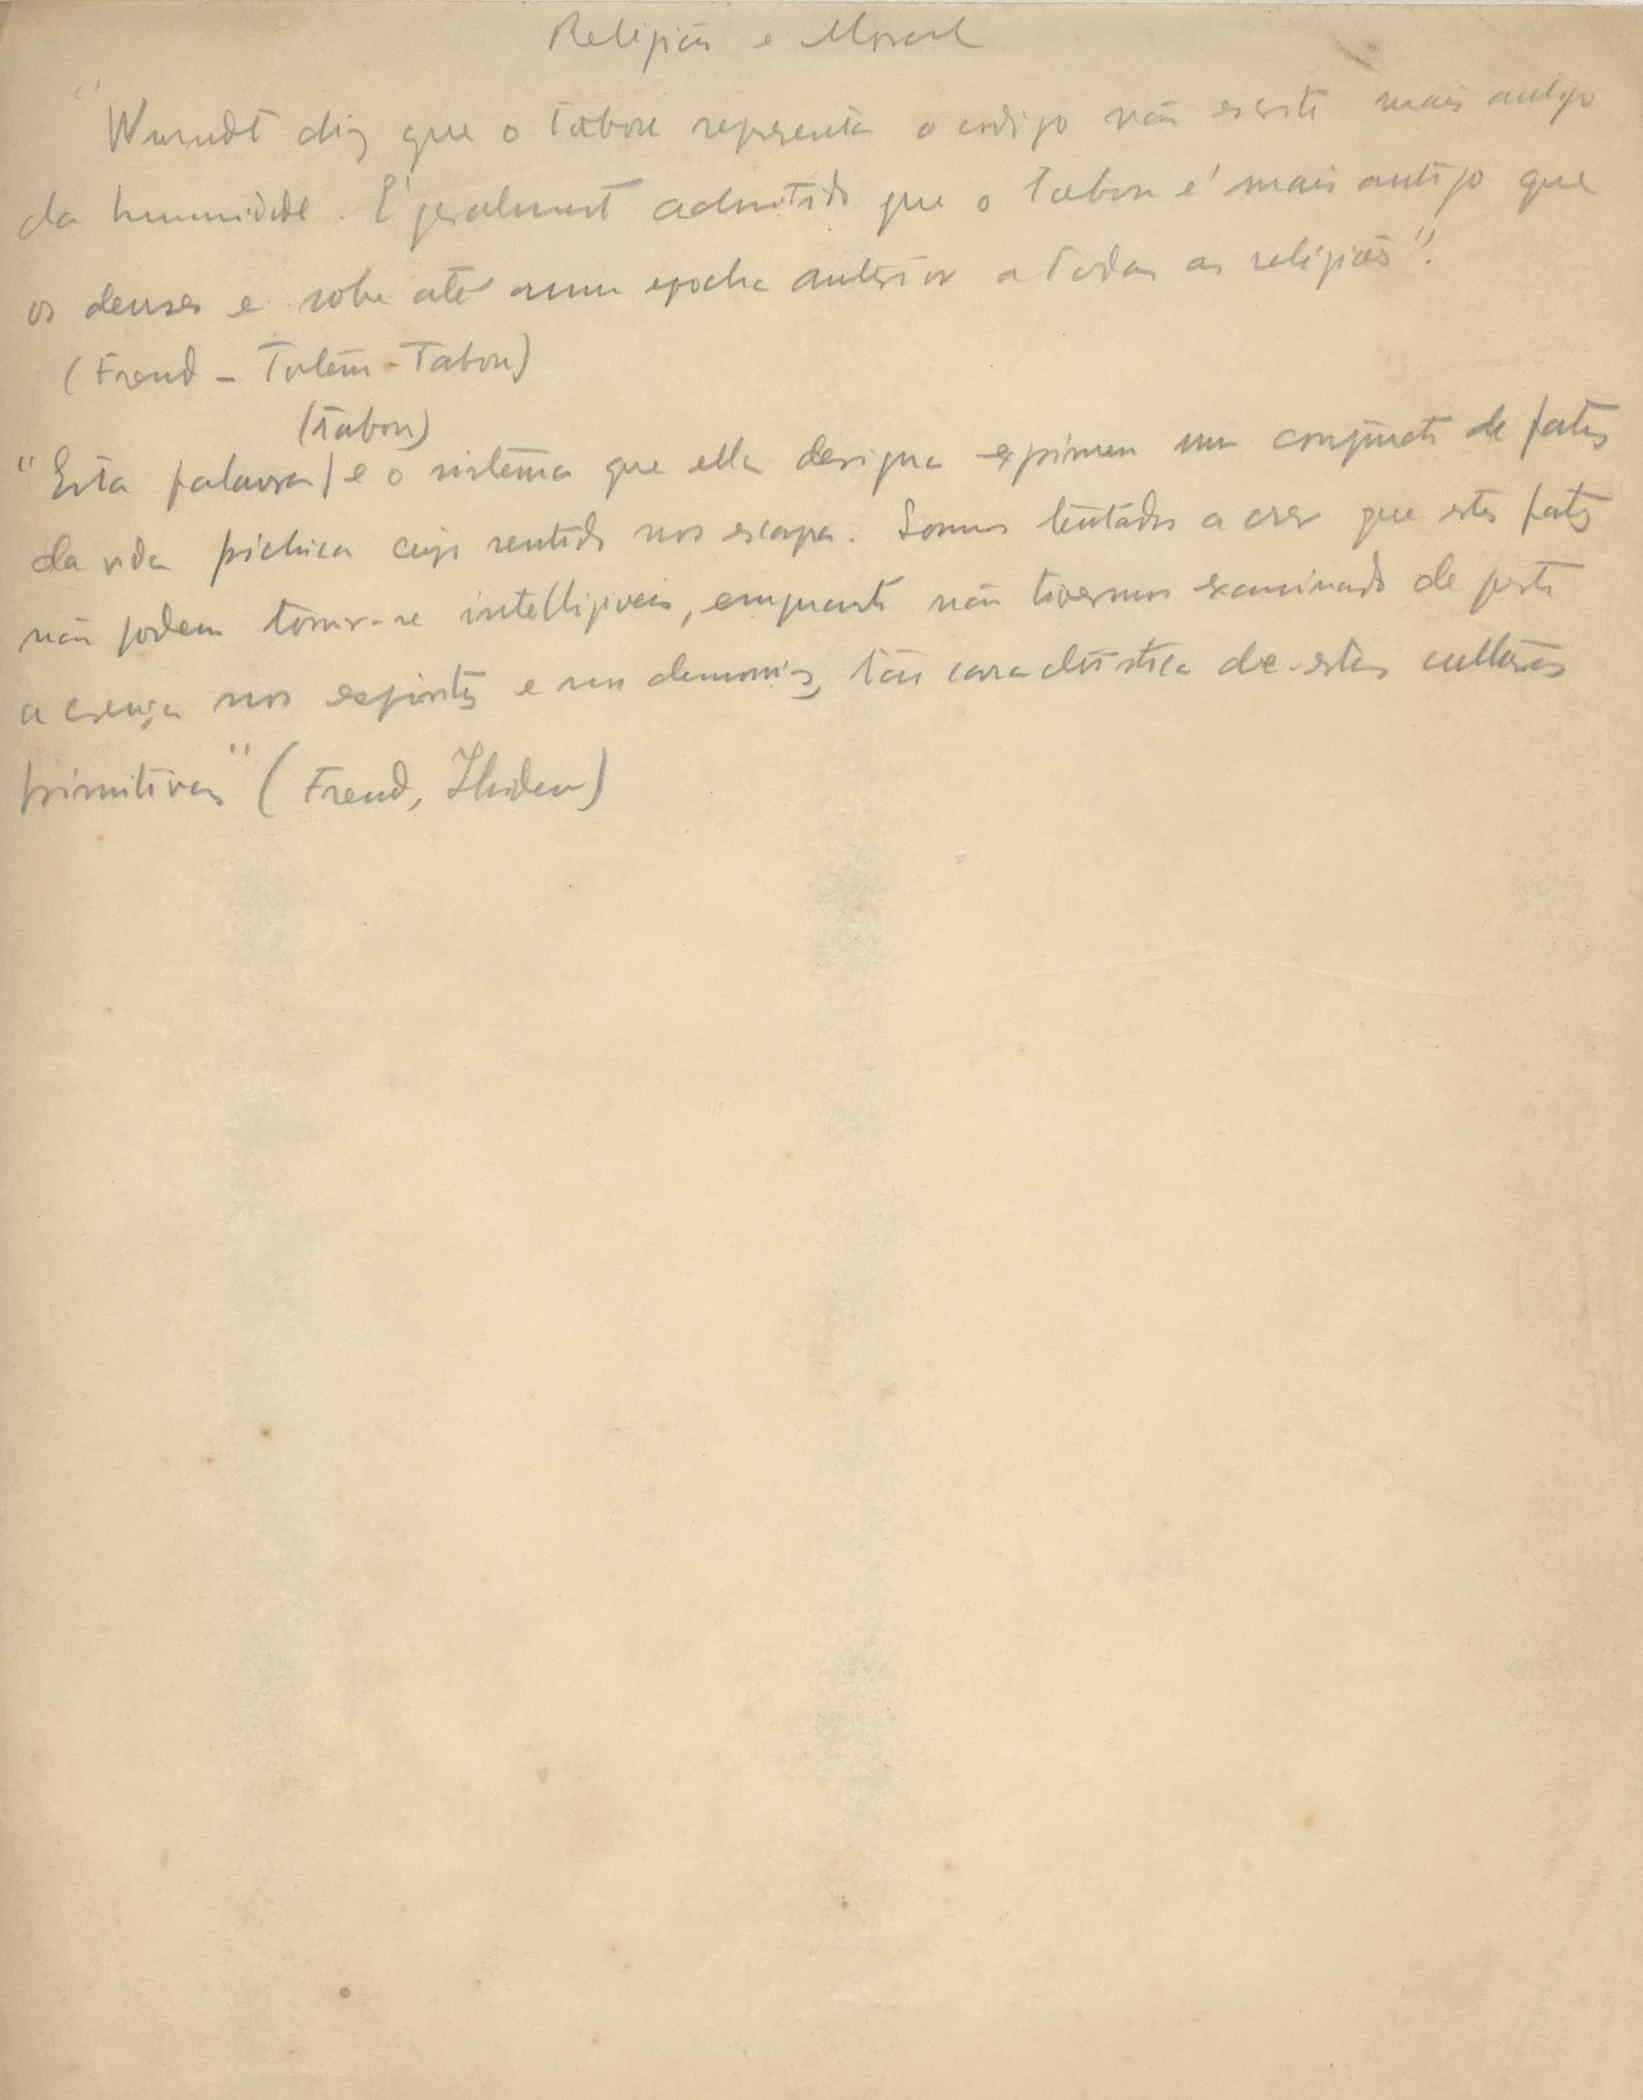 Religião e Moral
"Wundt diz que o tabou representa o codigo não escrito mais antigo
da humanidade. E' geralmente admitido que o tabou e' mais antigo que
os deuses e sobe até a uma epocha anterior a todas as religiões".
(Freud - Totem - Tabou)
(tabou)
"Esta palavra e o sistema que ella designa exprimem um conjuncto de fatos
da vida psichica cujo sentido nos escapa. Somos tentados a crer que estes fatos
não podem tornar-se intelligiveis, emquanto não tivermos examinado de perto
a crença nos espiritos e nos demonios, tão caracteristica de estas culturas
primitivas" (Freud, Ibidem)